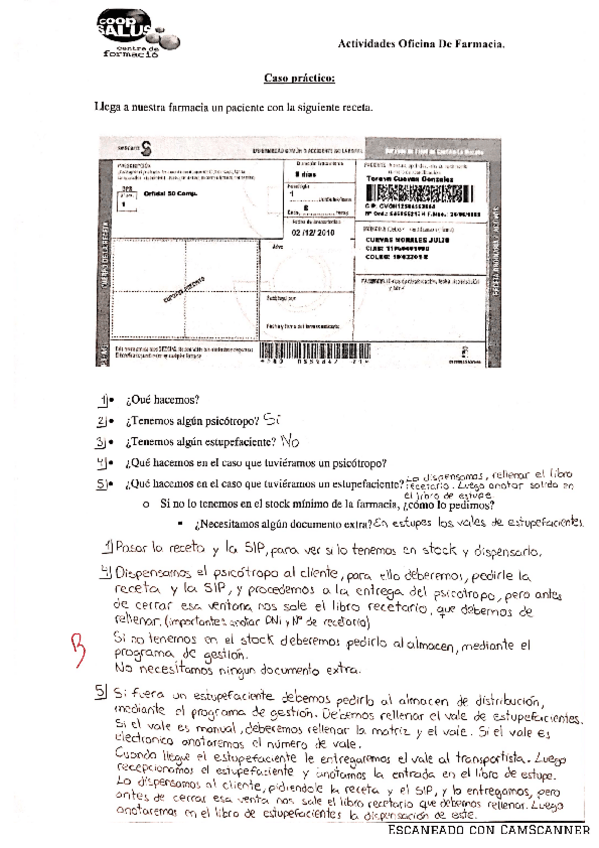 coop
SALUS
centre de
formació
Actividades Oficina De Farmacia.
Caso práctico:
Llega a nuestra farmacia un paciente con la siguiente receta.
8 días
Teresa Cuevas Gonzales
Orfidal 50 Comp.
1
1
8
02 /12/ 2010
CUEVAS MORALES JULIO
1) • ¿Qué hacemos?
2) • ¿Tenemos algún psicótropo? Si
3) • ¿Tenemos algún estupefaciente? No
4) • ¿Qué hacemos en el caso que tuviéramos un psicótropo?
5) • ¿Qué hacemos en el caso que tuviéramos un estupefaciente? Lo dispensamos, rellenar el libro
recetario. Luego anotar salida en
el libro de estupe
o Si no lo tenemos en el stock mínimo de la farmacia, ¿cómo lo pedimos?
▪ ¿Necesitamos algún documento extra? En estupes los vales de estupefacientes.
1) Pasar la receta y la SIP, para ver si lo tenemos en stock y dispensarlo.
4) Dispensamos el psicótropo al cliente, para ello deberemos, pedirle la
receta y la SIP, y procedemos a la entrega del psicotropo, pero antes
de cerrar esa ventana nos sale el libro recetario, que debemos de
rellenar. (importantes anotar DNi y Nº de recetario)
B
Si no tenemos en el stock deberemos pedirlo al almacen, mediante el
programa de gestión.
No necesitamos ningun documento extra.
5) Si fuera un estupefaciente debemos pedirlo al almacen de distribución,
mediante el programa de gestión. Debemos rellenar el vale de estupefacientes.
Si el vale es manual, deberemos rellenar la matriz y el vale. Si el vale es
electronico anotaremos el número de vale.
Cuando llegue el estupefaciente le entregaremos el vale al transportista. Luego
recepcionamos el estupefaciente y anotamos la entrada en el libro de estupe.
Lo dispensamos al cliente, pidiendole la receta y el SIP, y lo entregamos, pero
antes de cerrar esa venta nos sale el libro recetario que debemos rellenar. Luego
anotaremos en el libro de estupefacientes la dispensación de este.
ESCANEADO CON CAMSCANNER